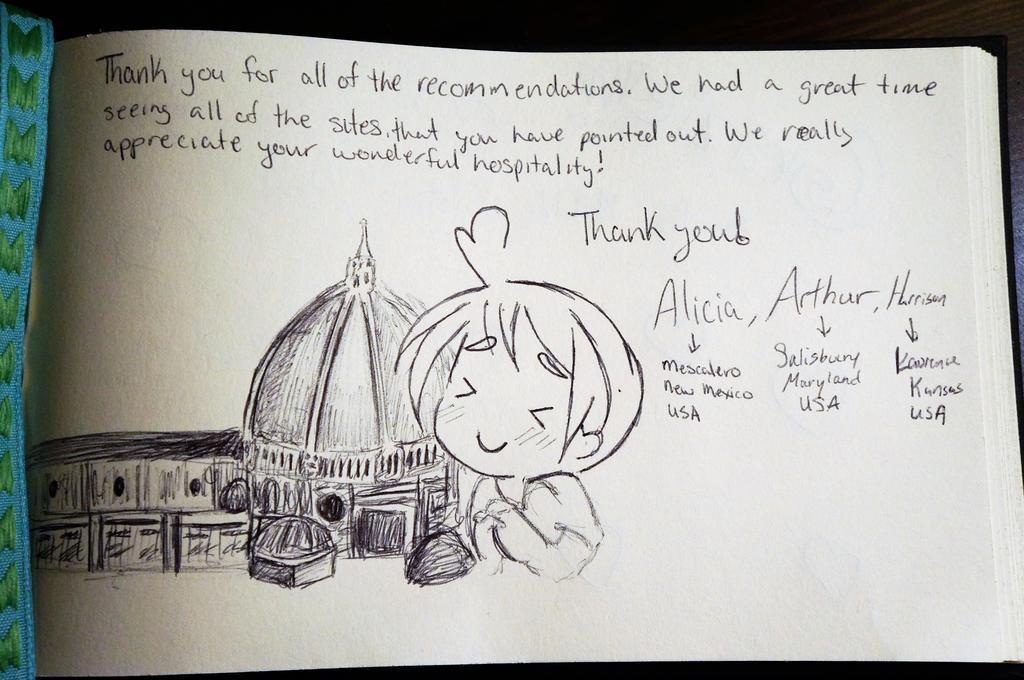 Thank you for all of the recommendations. We had a great time
seeing all of the sites, that you have pointed out. We really
appreciate your wonderful hospitality!
Thank you!
Alicia, Arthur, Harrison
Mescalero
New Mexico
USA
Salisbury
Maryland
USA
Lawrence
Kansas
USA